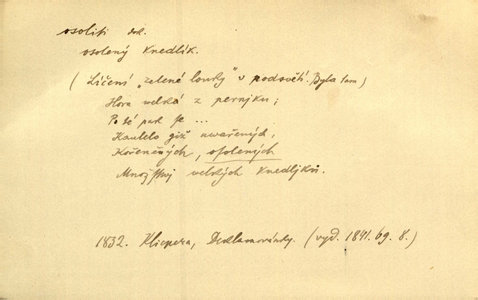 osoliti dok.
osolený knedlík.
(Líčení „zelené louky" v podsvětí. Byla tam)
Hora velká z pernjku;
Po té pak se ...
Kaulelo giž uwařených,
Kořeněných, osolených
Množstwj velkých knedljků.
1832. Klicpera, Deklamovánky. (vyd. 1841. 69. 8.)